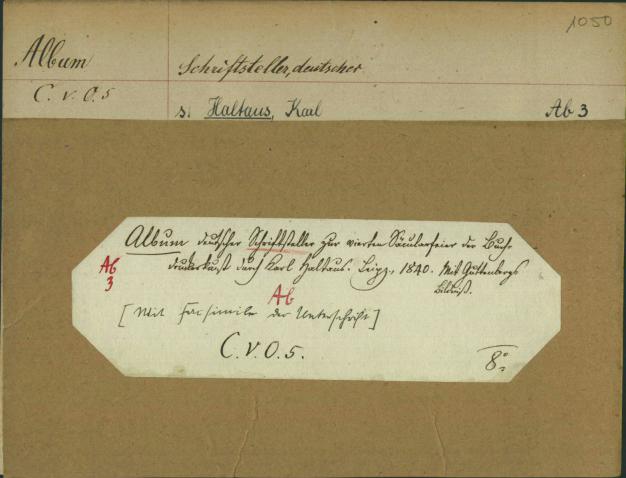 1050
Album
Schriftsteller, deutscher
C. v. O. 5
s. Haltaus, Karl
Ab 3
Album deutscher Schriftsteller zur vierten Säcularfeier der Buch-
druckerkunst durch Karl Haltaus. Leipz., 1840. Mit Guttenbergs
Bildniß.
Ab
3
Ab
[Mit Facsimile der Unterschrift]
C. v. O. 5.
8°